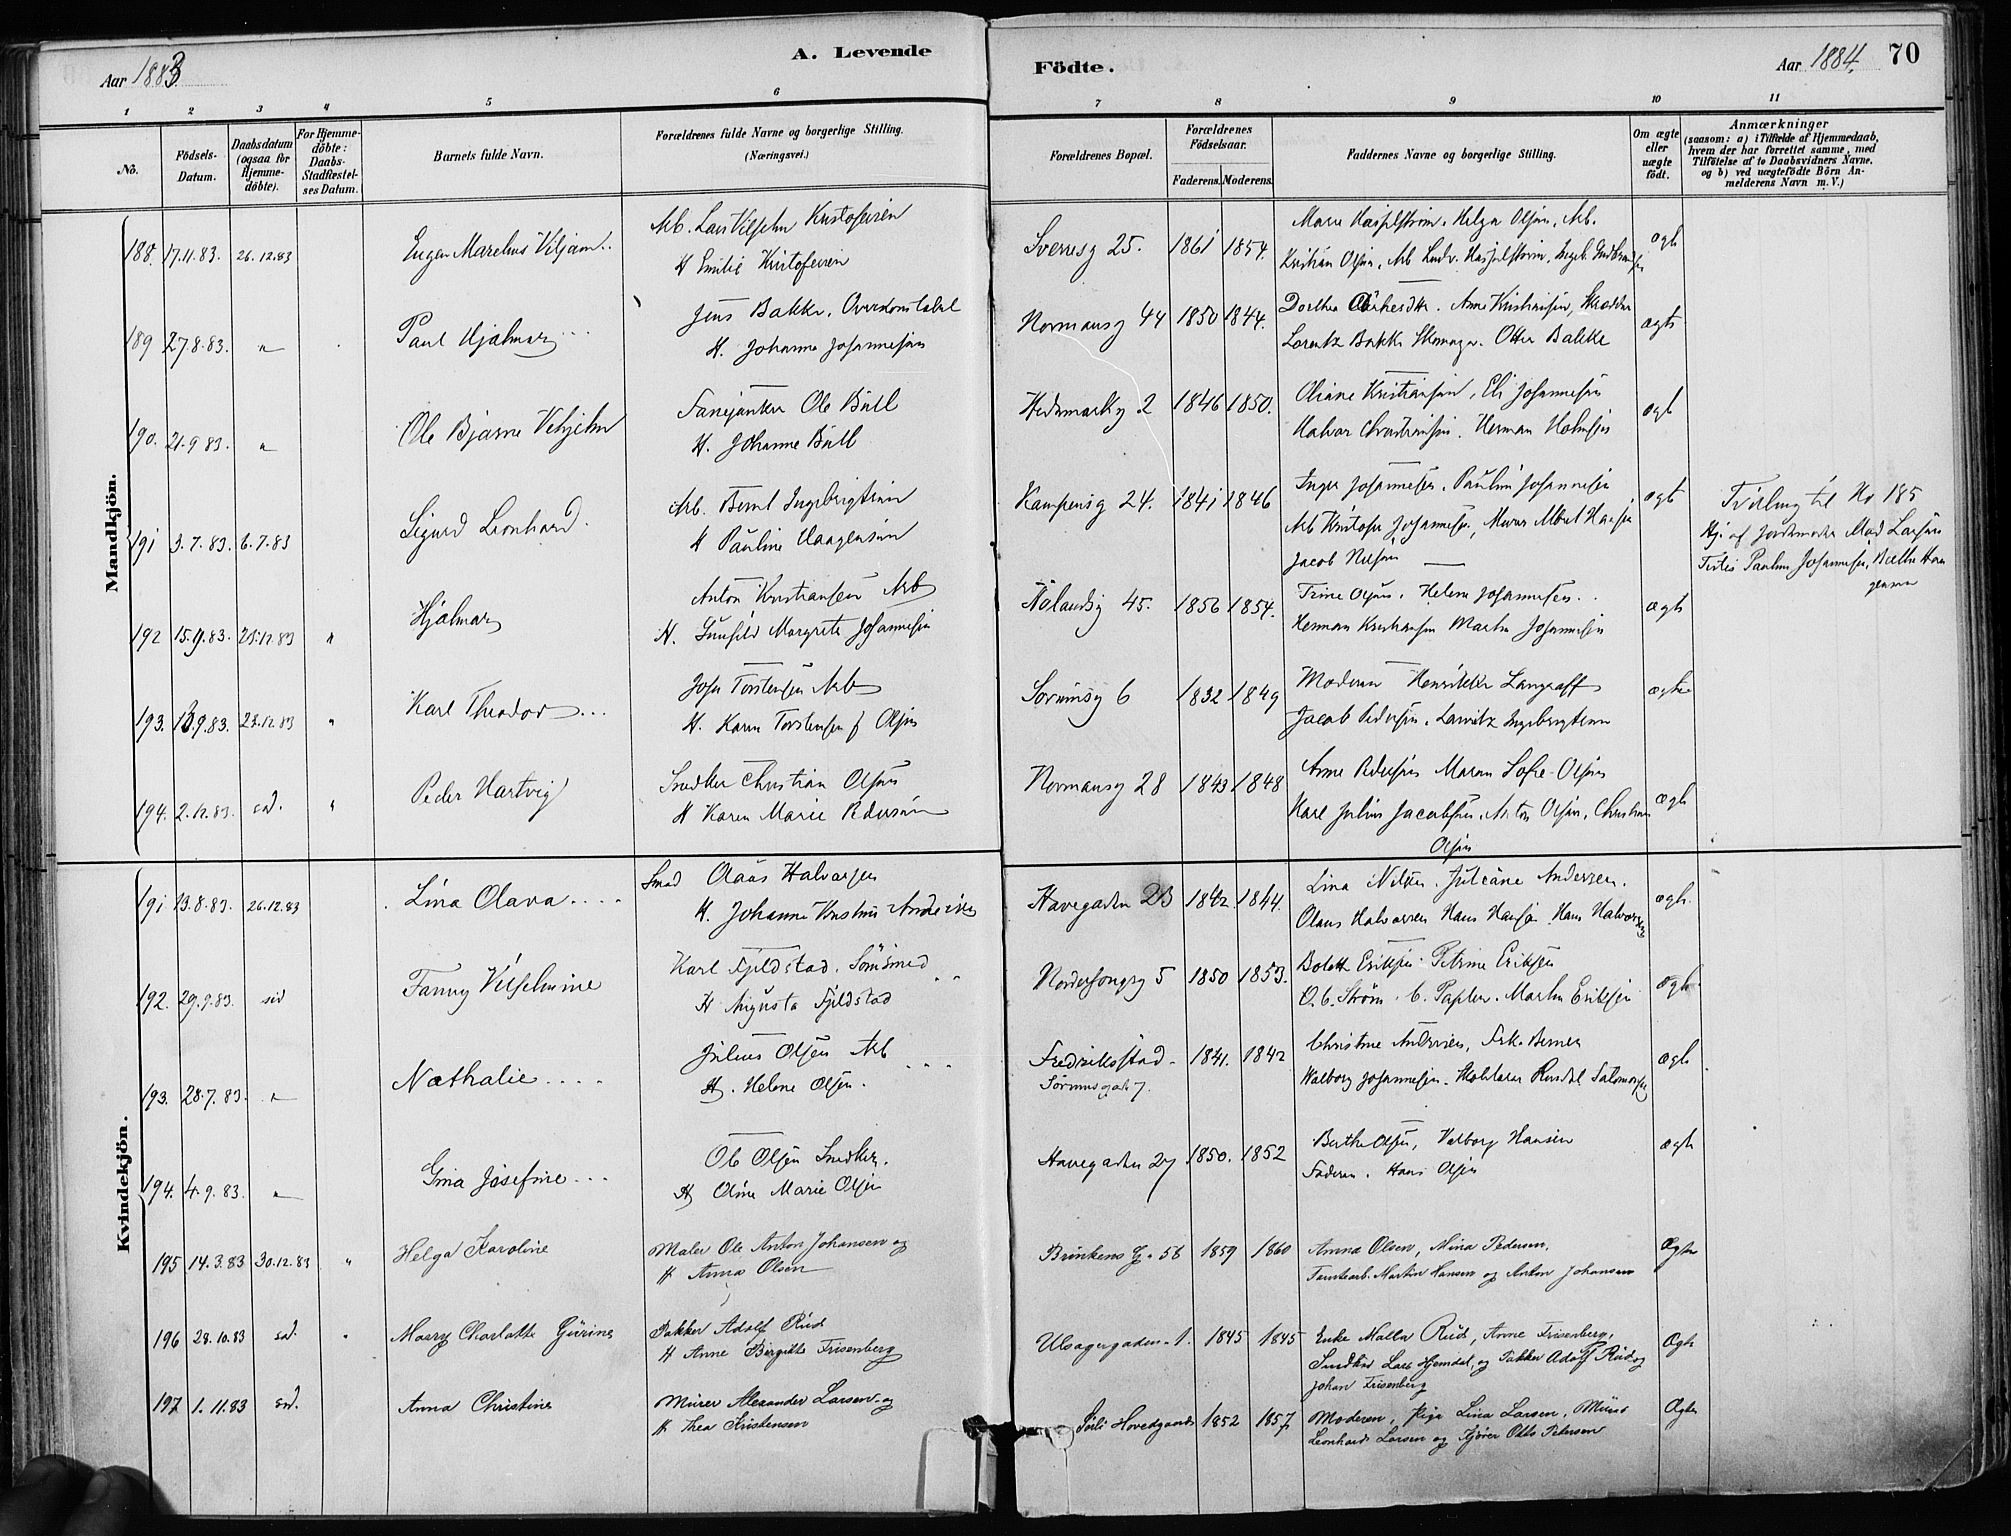 Aar 1883
A. Levende
Födte.
Aar 1884.
70
1 2 3 4 5 6 7 8 9 10 11
No.
Födsels-Datum.
Daabsdatum (ogsaa for Hjemmedöbte).
For Hjemmedöbte: Daabs-Stadfæstelses Datum.
Barnets fulde Navn.
Forældrenes fulde Navne og borgerlige Stilling. (Næringsvei.)
Forældrenes Bopæl.
Forældrenes Födselsaar.
Faderens. Moderens.
Faddernes Navne og borgerlige Stilling.
Om ægte eller uægte födt.
Anmærkninger (saasom: a) i Tilfælde af Hjemmedaab, hvem der har forrettet samme, med Tilföielse af to Daabsvidners Navne, og b) ved uægtefödte Börn Anmelderens Navn m. V.)
Mandkjön.
188. 17.11.83. 26.12.83 Eugen Marelius Viljam
Arb. Lars Vilhelm Kristofersen
H Emilie Kristofersen
Sveresg 25. 1861 1854.
Marie Haspelstrøm, Helga Olsen, Arb.
Kristian Olsen, Arb Ludv. Haspelstrøm, Ingeb.
ægt
189 27.8.83. " Paul Hjalmar
Jens Bakke, Overkonstabel
H. Johanne Johannesen
Normansg 44 1850 1844.
Dorthea, Anne Kristiansen,
Lorentz Bakke, Otter Bakke
ægte
190. 21.9 83. " Ole Bjarne Vilhjelm
Fanejunker Ole Bull
H. Johanne Bull
Hedemarksg 2 1846 1850.
Oliane Kristiansen, Eli Johannesen
Halvor Christiansen. Herman Holmsen
ægt
191 3.7.83. 6.7.83 Sigurd Leonhard
Arb. Bernt Ingebrigtsen
H Pauline Haagensen
Kampensg 24. 1841 1846
Inger Johannesen. Pauline Johannesen
Arb Kristofer Johannesen, Murer Albert Hansen
Jacob Nilsen
ægt
Tvilling til No 185
Hj. af Jordemoder Mad Larsen
Pauline Johannesen, Haagensen
192 15.9.83. 25.12.83 " Hjalmar
Anton Kristiansen Arb
H. Gunhild Margrete Johannesen
Hølandsg 45. 1856 1854.
Trine Olsen. Helene Johannesen.
Herman Kristiansen Martin Johannesen
ægte
193. 13.9.83. 25.12.83 " Karl Theodor
Johan Torstensen Arb
H. Karen Torstensen f Olsen
Sørumsg 6 1832 1849
Moderen Henrikke Langraff
Jacob Pedersen. Lauritz Ingebrigtsen
ægte
194. 2.12.83. sad. " Peder Hartvig
Snedker Christian Olsen
H Karen Marie Pedersen
Normansg 28 1843 1848
Anne Pedersen Maren Sofie Olsen
Karl Julius Jacobsen, Anton Olsen, Christian
Olsen
ægt
Kvindekjön.
191 13.8.83. 26.12.83 Lina Olava
Smed Olaus Halvorsen
H. Johanne Andersen
Havegaden 23 1842 1844.
Lina Nilsen. Juleane Andersen.
Olaus Halvorsen Hans Hansen Hans Halvorsen
ægte.
192. 29.9.83. sad Fanny Vilhelmine
Karl Fjeldstad. Sømsmed
H Augusta Fjeldstad
5 1850 1853.
Bolette Eriksen. Petrine Eriksen
O. C. Strøm. C. Martin Eriksen
ægte.
193. 28.7.83. " Nathalie
Julius Olsen Arb
H. Helene Olsen.
Fredrikkstad
Sørumsgade 7. 1841. 1842
Christine Andersen,
Valborg Johannesen.
ægte
194. 4.9.83. " Gina Josefine
Ole Olsen Snedker.
H Oline Marie Olsen
Havegaden 27 1850. 1852
Berthe Olsen, Valborg Hansen
Faderen. Hans Olsen
ægte
195 14.3.83 30.12.83 " Helga Karoline
Maler Ole Anton Johansen og
H Anna Olsen
Brinkens G. 56 1859 1860
Amna Olsen, Mina Pedersen,
Martin Hansen og Anton Johansen
Ægte
196 28.10.83 sad. " Maary Charlotte Gurine
Pakker Adolf Rud
H Anne Birgitte Frisenberg
Ulsagergaden 1. 1845 1845
Enke Malla Rud, Anne Frisenberg,
Snedker Lars Hjemdal, og Pakker Adolf Rud og
Johan Frisenberg
Ægte
197 1.11.83 sad. Anna Christine
Murer Alexander Larsen og
H Thea Kristensen
Hovedgaard 1852 1857.
Moderen, Pige Lina Larsen, Murer
Leonhard Larsen og Kjører Otto Petersen
Ægte